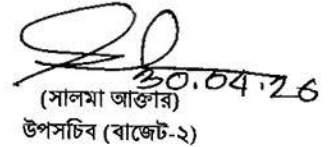 30.04.26
(সালমা আক্তার)
উপসচিব (বাজেট-২)